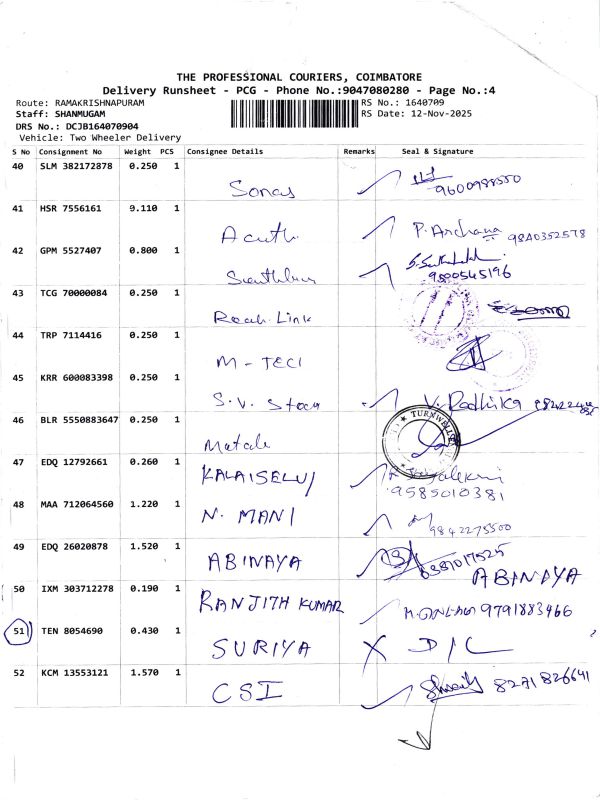 THE PROFESSIONAL COURIERS, COIMBATORE
Delivery Runsheet - PCG - Phone No.:9047080280 - Page No.:4
Route: RAMAKRISHNAPURAM RS No.: 1640709
Staff: SHANMUGAM RS Date: 12-Nov-2025
DRS No.: DCJB164070904
Vehicle: Two Wheeler Delivery
S No Consignment No Weight PCS Consignee Details Remarks Seal & Signature
40 SLM 382172878 0.250 1
Sonas 9600988550
41 HSR 7556161 9.110 1
P. Archana 9840352578
42 GPM 5527407 0.800 1
9500545196
43 TCG 70000084 0.250 1
Reach Link
44 TRP 7114416 0.250 1
M-TECI
45 KRR 600083398 0.250 1
S.V. V. Radhika
46 BLR 5550883647 0.250 1
TURNWELL
47 EDQ 12792661 0.260 1
KALAISELVI
9585010381
48 MAA 712064560 1.220 1
N. MANI 9842275500
49 EDQ 26020878 1.520 1
ABINAYA 6381017525 ABINAYA
50 IXM 303712278 0.190 1
RANJITH KUMAR 9791883466
51 TEN 8054690 0.430 1
SURIYA X D/L
52 KCM 13553121 1.570 1
CSI 8271826641